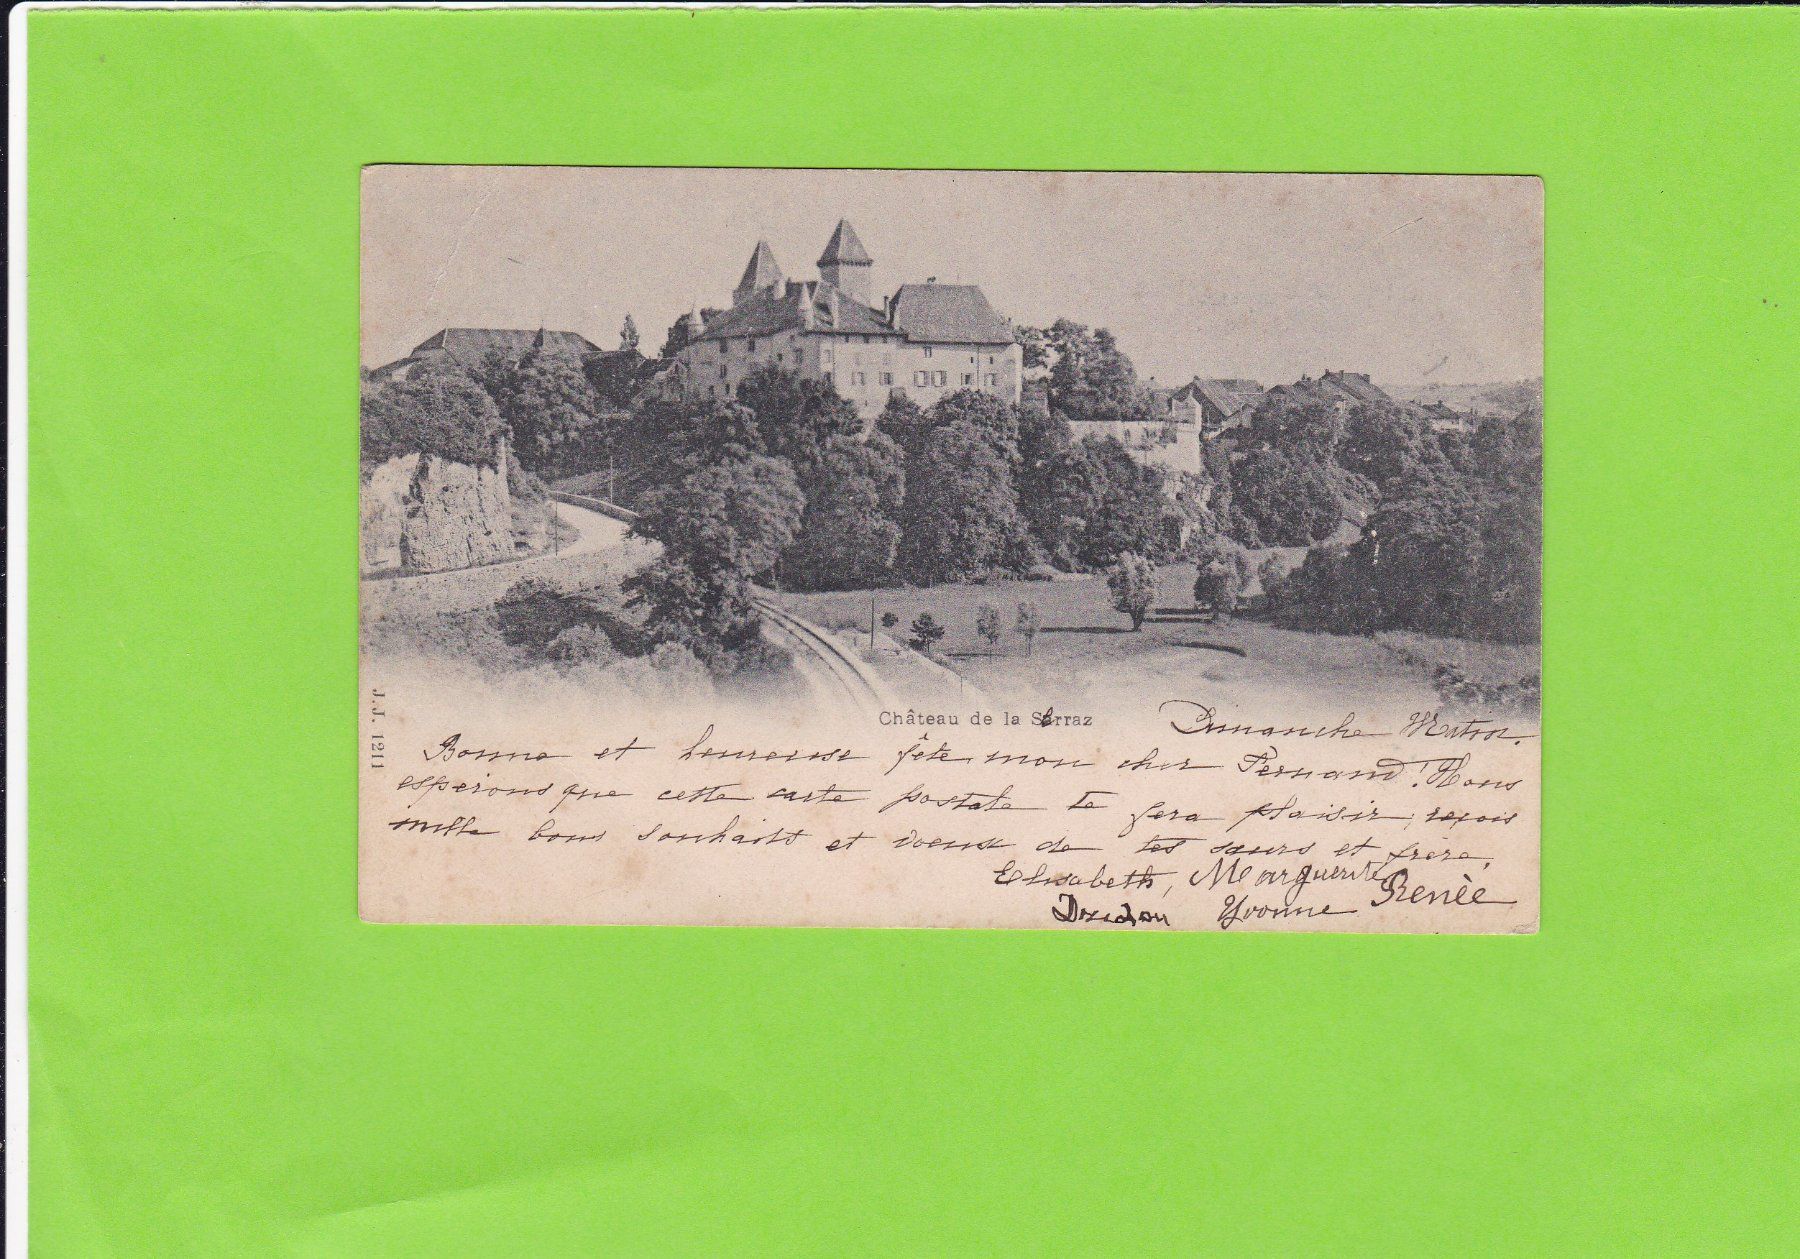 J.J. 1211
Château de la Sarraz
Dimanche Matin.
Bonne et heureuse fête mon cher Fernand! Nous
espérons que cette carte postale te fera plaisir; reçois
mille bons souhaits et voeux de tes sœurs et frère.
Elisabeth, Marguerite
Yvonne Renée